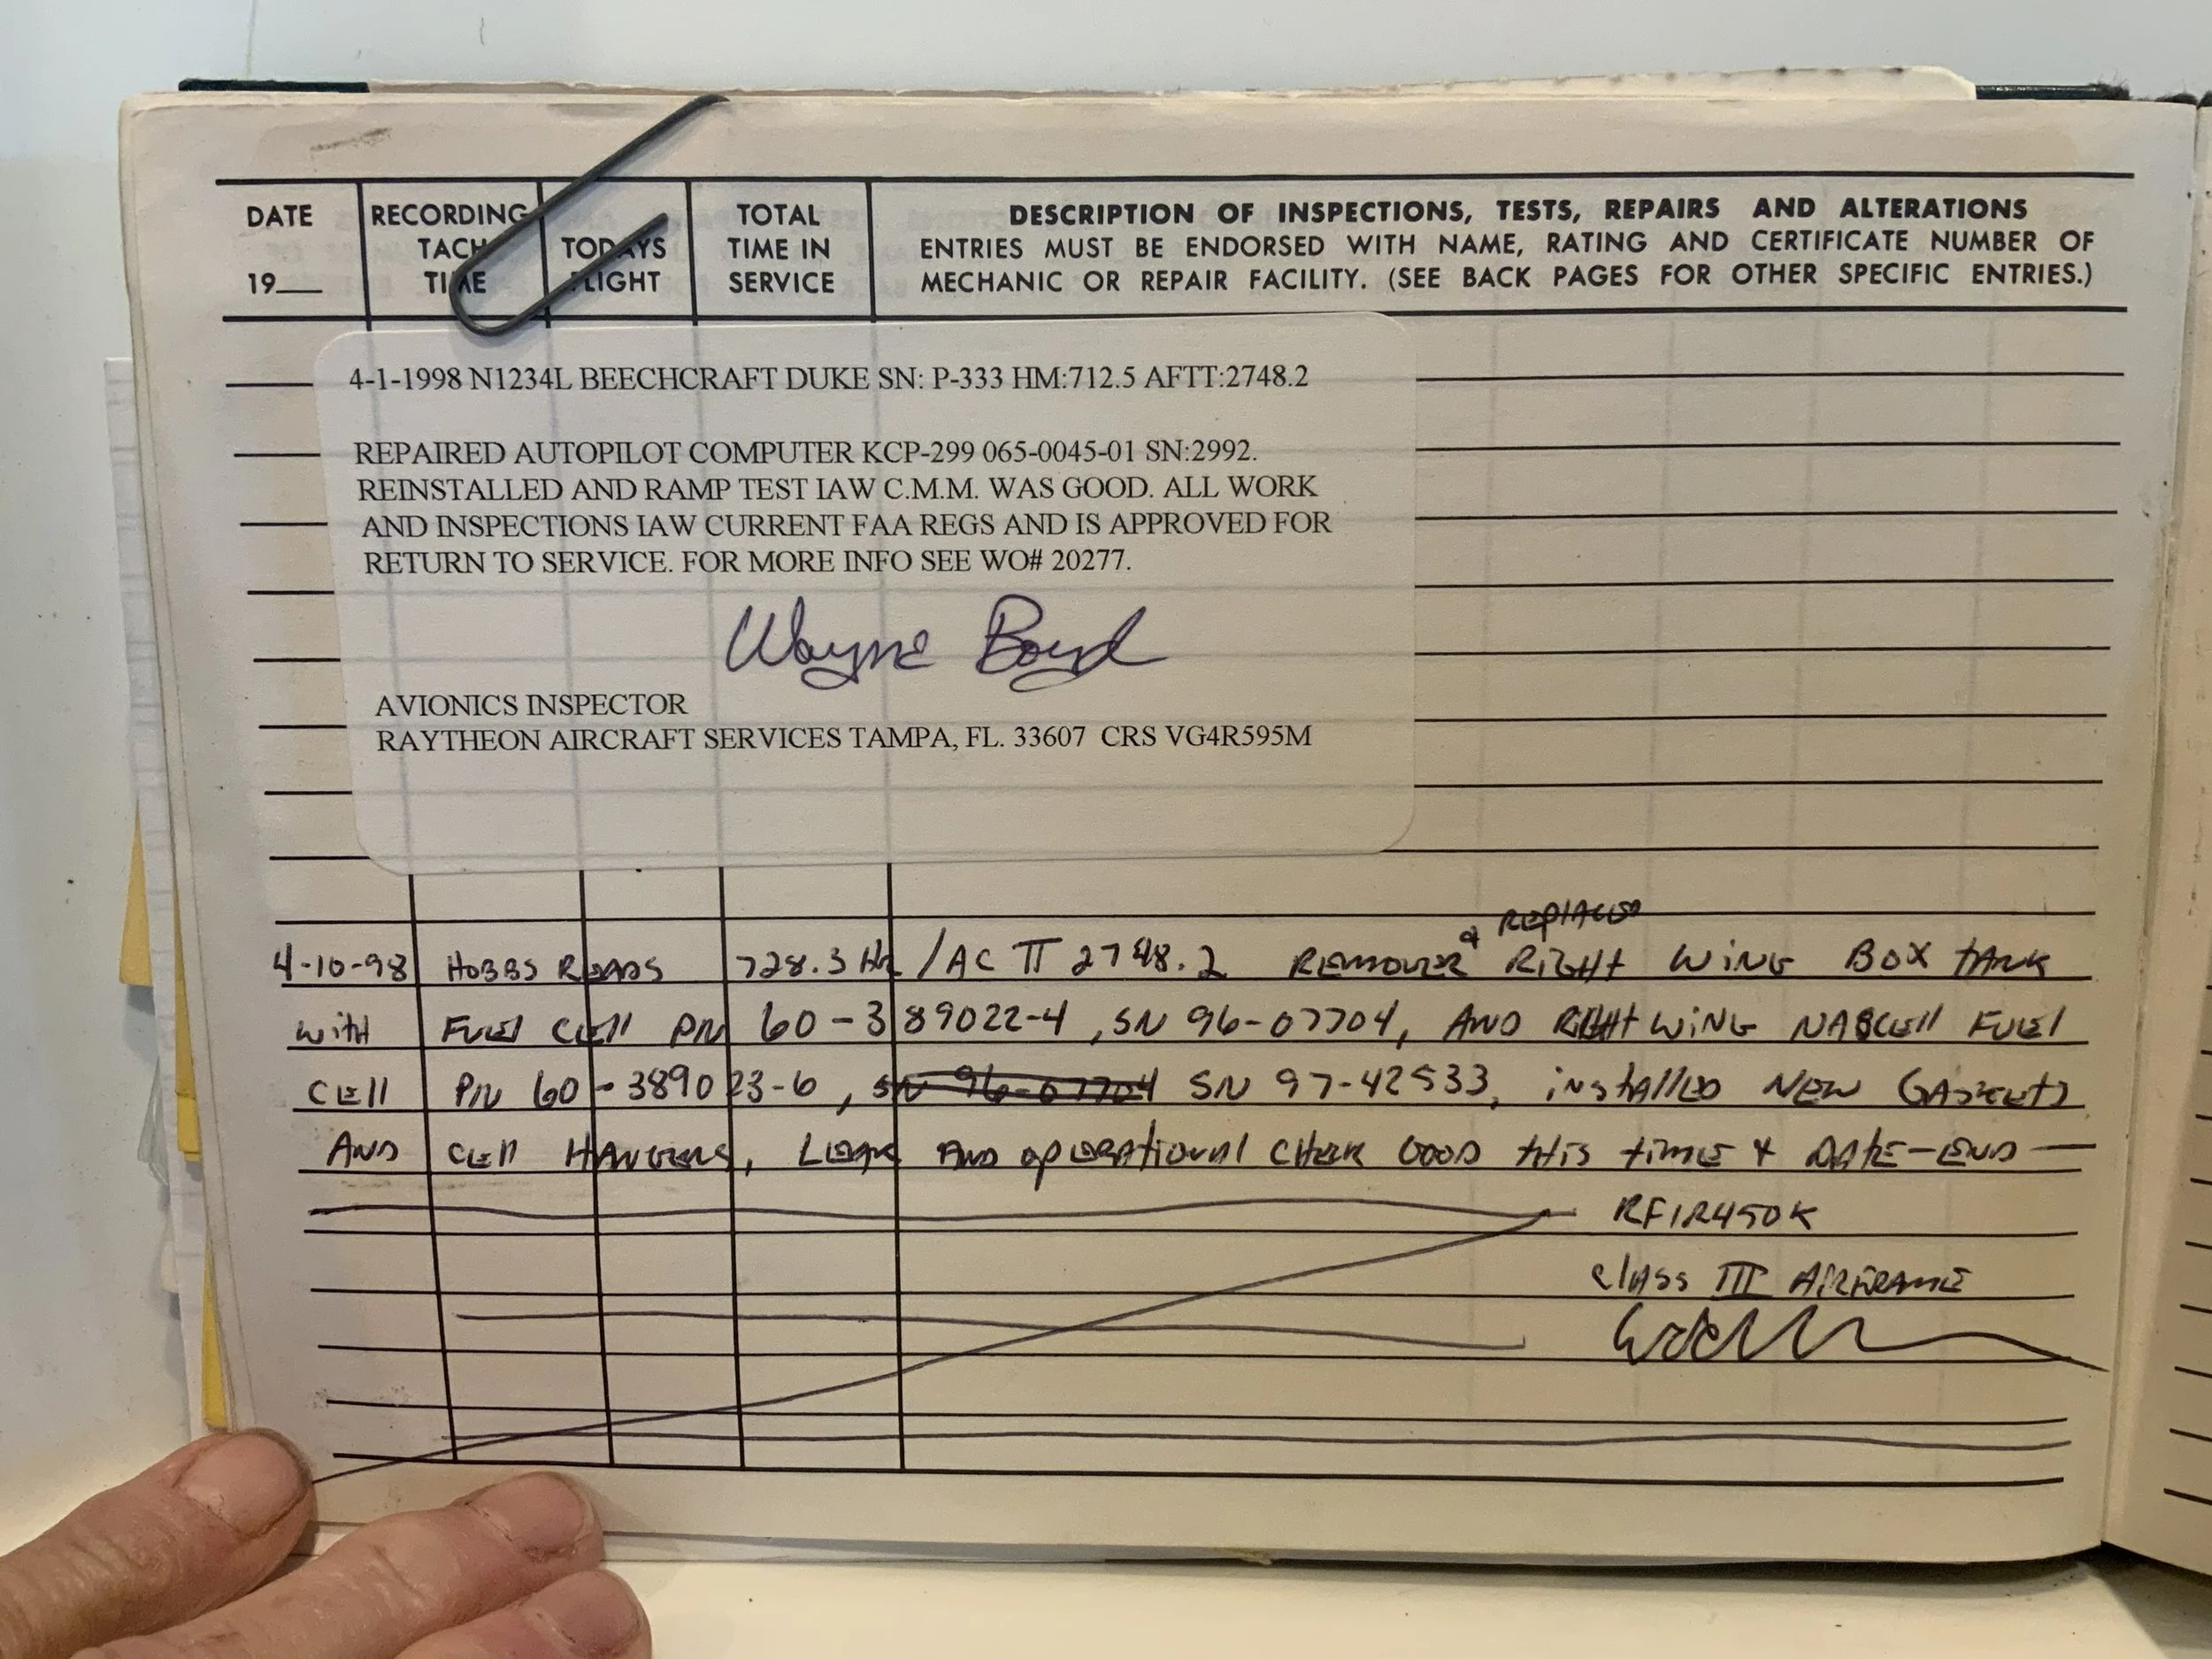 DATE RECORDING TACH TIME TODAYS FLIGHT TOTAL TIME IN SERVICE
19__
DESCRIPTION OF INSPECTIONS, TESTS, REPAIRS AND ALTERATIONS
ENTRIES MUST BE ENDORSED WITH NAME, RATING AND CERTIFICATE NUMBER OF
MECHANIC OR REPAIR FACILITY. (SEE BACK PAGES FOR OTHER SPECIFIC ENTRIES.)
4-1-1998 N1234L BEECHCRAFT DUKE SN: P-333 HM:712.5 AFTT:2748.2
REPAIRED AUTOPILOT COMPUTER KCP-299 065-0045-01 SN:2992.
REINSTALLED AND RAMP TEST IAW C.M.M. WAS GOOD. ALL WORK
AND INSPECTIONS IAW CURRENT FAA REGS AND IS APPROVED FOR
RETURN TO SERVICE. FOR MORE INFO SEE WO# 20277.
Wayne Boyd
AVIONICS INSPECTOR
RAYTHEON AIRCRAFT SERVICES TAMPA, FL. 33607 CRS VG4R595M
4-10-98 HOBBS READS 728.3 HR / AC TT 2748.2 REMOVED & REPLACED RIGHT WING BOX TANK
WITH FUEL CELL P/N 60-389022-4, SN 96-07704, AND RIGHT WING NASCELL FUEL
CELL P/N 60-389023-6, SN 96-07704 SN 97-42533, INSTALLED NEW GASKETS
AND CELL HANGERS, LEAK AND OPERATIONAL CHECK GOOD THIS TIME & DATE-END—
RF1R450K
CLASS III AIRFRAME